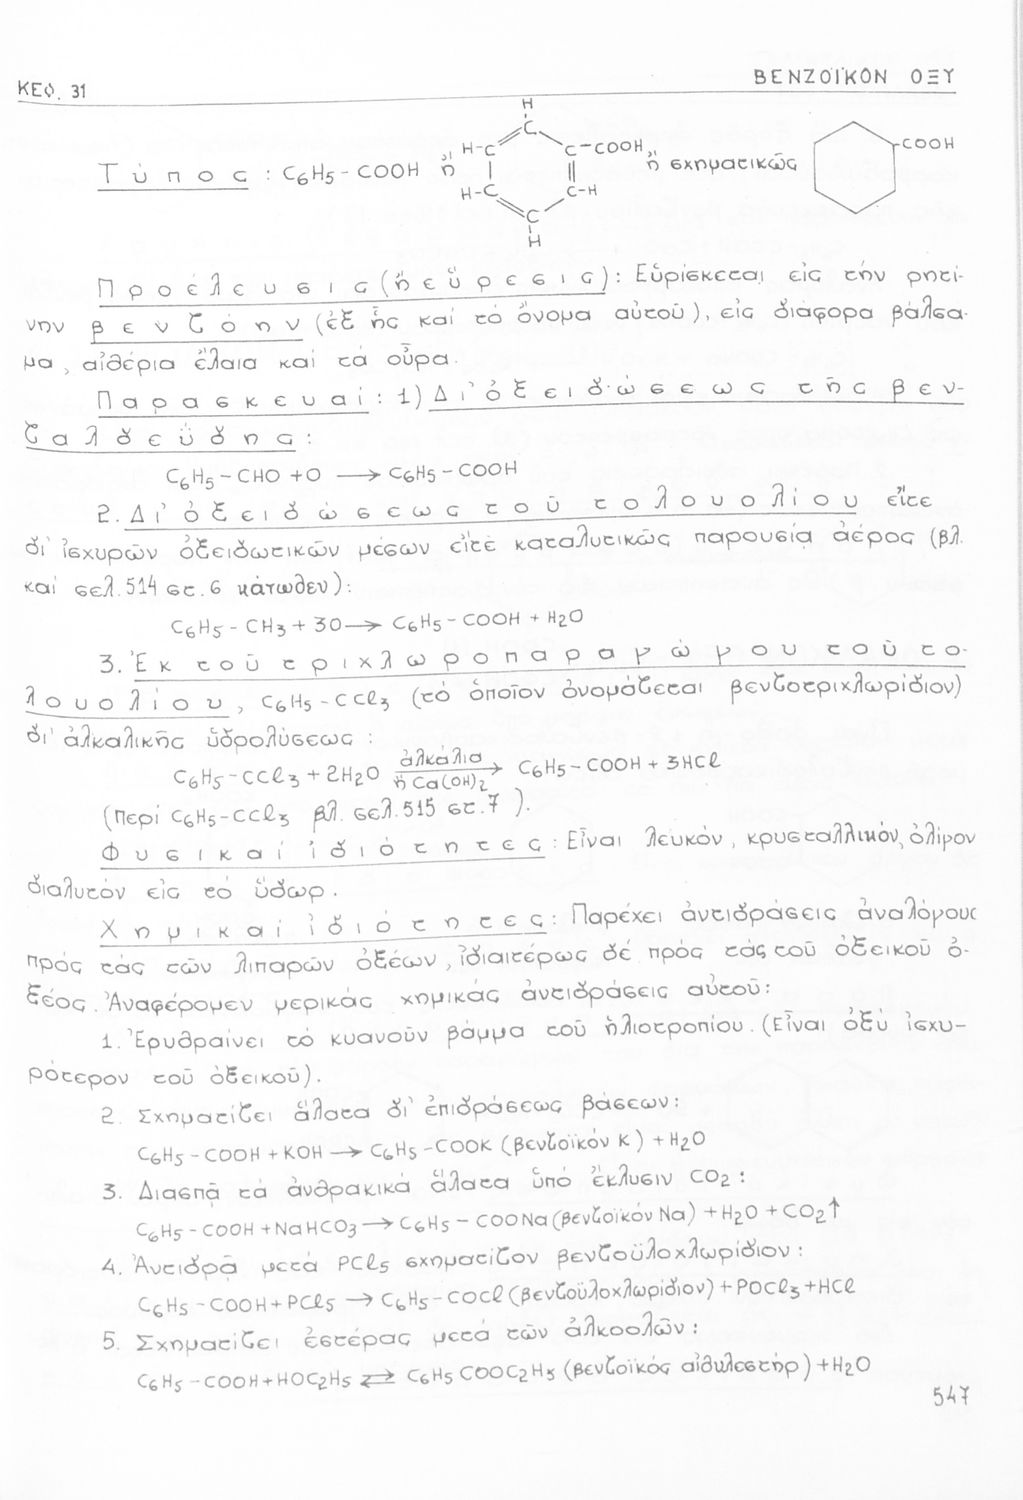 ΚΕΦ. 31
ΒΕΝΖΟΪΚΟΝ ΟΞΥ
Τύπος : C6H5-COOH ἤ H H-C C C-COOH H-C C-H C H ἤ σχηματικῶς COOH
Προέλευσις (ἤ εὕρεσις): Εὑρίσκεται εἰς τήν ρητί-
νην βενζόην (ἐξ ἧς καί τό ὄνομα αὐτοῦ), εἰς διάφορα βάλσα-
μα, αἰθέρια ἔλαια καί τά οὖρα.
Παρασκευαί: 1) Δι' ὀξειδώσεως τῆς βεν-
ζαλδεΰδης:
C6H5-CHO +O ⟶ C6H5-COOH
2. Δι' ὀξειδώσεως τοῦ τολουολίου εἴτε
δι' ἰσχυρῶν ὀξειδωτικῶν μέσων εἴτε καταλυτικῶς παρουσίᾳ ἀέρος (βλ.
καί σελ. 514 στ. 6 κάτωθεν):
C6H5-CH3 + 3O ⟶ C6H5-COOH + H2O
3. Ἐκ τοῦ τριχλωροπαραγώγου τοῦ το-
λουολίου, C6H5-CCl3 (τό ὁποῖον ὀνομάζεται βενζοτριχλωρίδιον)
δι' ἀλκαλικῆς ὑδρολύσεως :
C6H5-CCl3 + 2H2O ἀλκάλια ἤ Ca(OH)2 ⟶ C6H5-COOH + 3HCl
(περί C6H5-CCl3 βλ. σελ. 515 στ. 7 ).
Φυσικαί ἰδιότητες : Εἶναι λευκόν, κρυσταλλικόν, ὀλίγον
διαλυτόν εἰς τό ὕδωρ.
Χημικαί ἰδιότητες: Παρέχει ἀντιδράσεις ἀναλόγους
πρός τάς τῶν λιπαρῶν ὀξέων, ἰδιαιτέρως δέ πρός τάς τοῦ ὀξεικοῦ ὀ-
ξέος. Ἀναφέρομεν μερικάς χημικάς ἀντιδράσεις αὐτοῦ:
1. Ἐρυθραίνει τό κυανοῦν βάμμα τοῦ ἡλιοτροπίου. (Εἶναι ὀξύ ἰσχυ-
ρότερον τοῦ ὀξεικοῦ).
2. Σχηματίζει ἅλατα δι' ἐπιδράσεως βάσεων:
C6H5-COOH + KOH ⟶ C6H5-COOK (βενζοϊκόν K) + H2O
3. Διασπᾷ τά ἀνθρακικά ἅλατα ὑπό ἔκλυσιν CO2 :
C6H5-COOH + NaHCO3 ⟶ C6H5-COONa (βενζοϊκόν Na) + H2O + CO2↑
4. Ἀντιδρᾷ μετά PCl5 σχηματίζον βενζοϋλοχλωρίδιον :
C6H5-COOH + PCl5 ⟶ C6H5-COCl (βενζοϋλοχλωρίδιον) + POCl3 + HCl
5. Σχηματίζει ἐστέρας μετά τῶν ἀλκοολῶν :
C6H5-COOH + HOC2H5 ⇄ C6H5COOC2H5 (βενζοϊκός αἰθυλεστήρ) + H2O
547